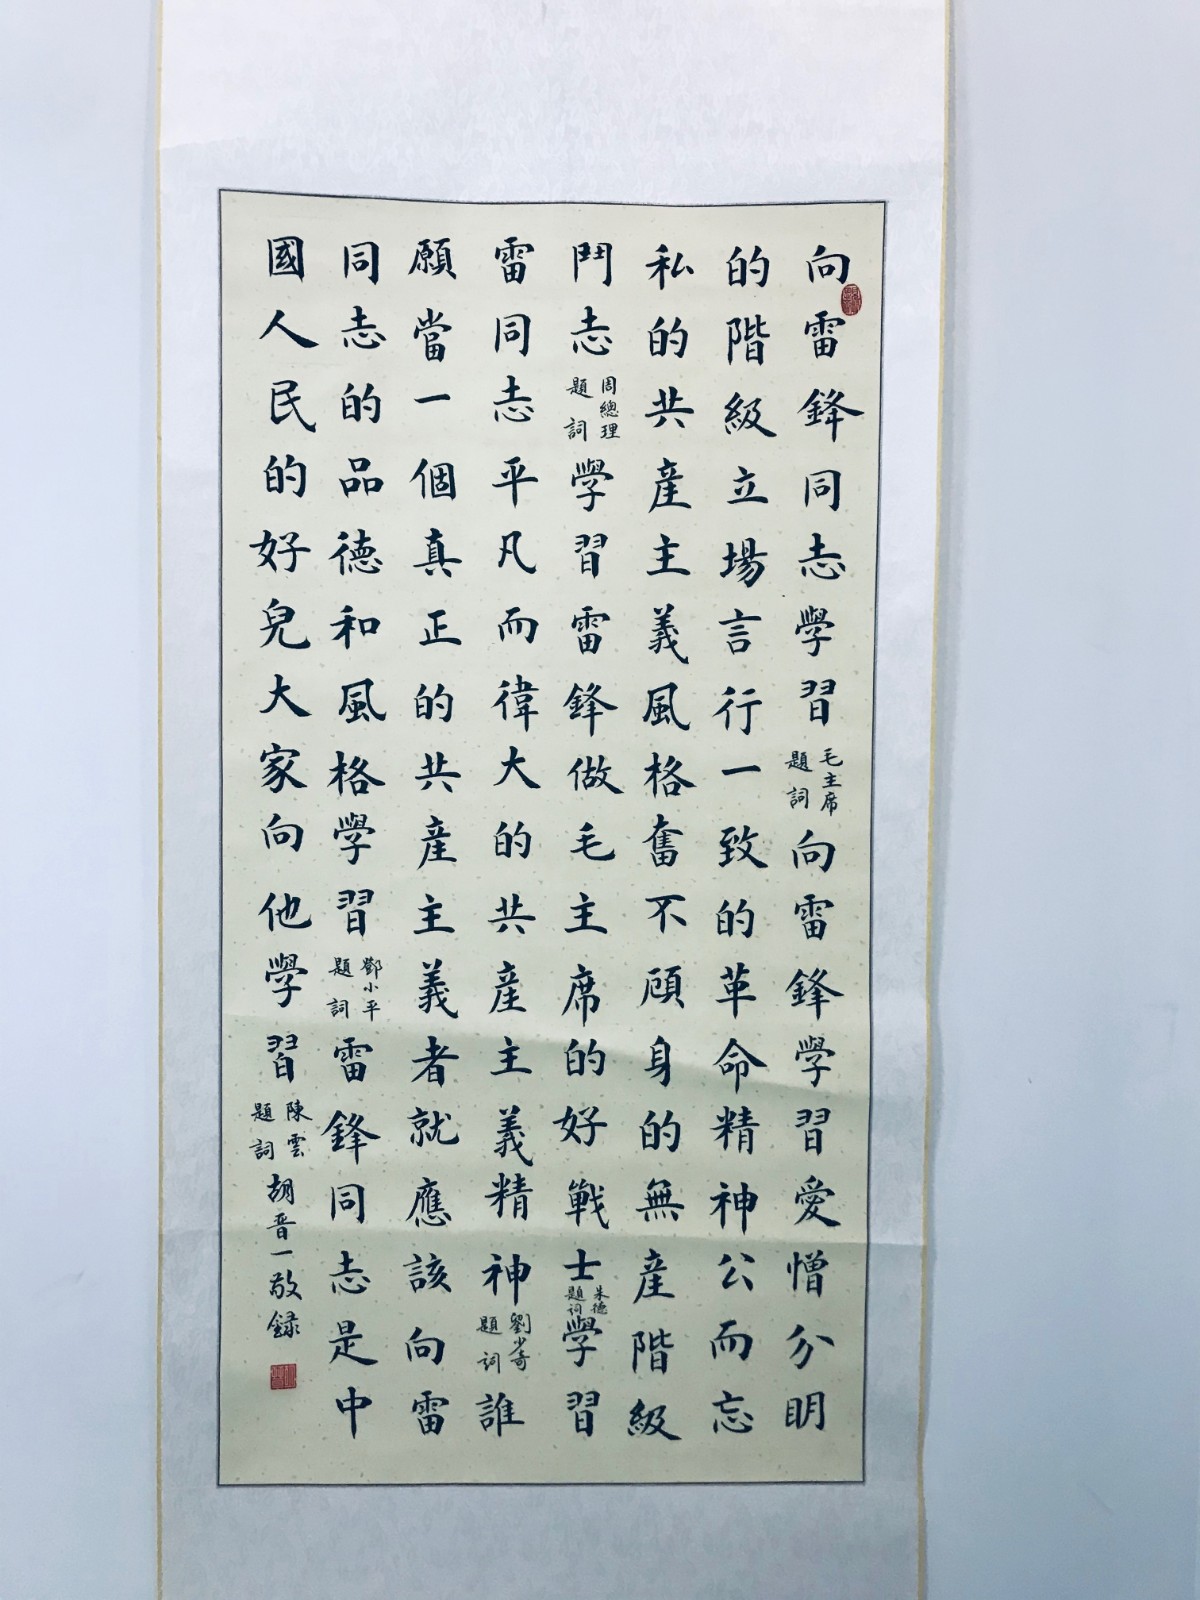 向雷鋒同志學習毛主席題詞向雷鋒學習愛憎分明
的階級立場言行一致的革命精神公而忘
私的共産主義風格奮不顧身的無産階級
鬥志周總理題詞學習雷鋒做毛主席的好戰士朱德題詞學習
雷同志平凡而偉大的共産主義精神劉少奇題詞誰
願當一個真正的共産主義者就應該向雷
同志的品德和風格學習鄧小平題詞雷鋒同志是中
國人民的好兒大家向他學習陳雲題詞胡晋一敬録